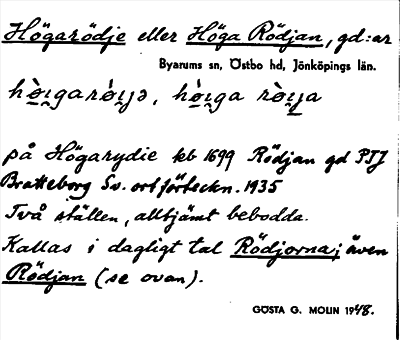 Högarödje eller Höga Rödjan, gd:ar
Byarums sn, Östbo hd, Jönköpings län.
på Högarydie kb 1699 Rödjan gd PTJ
Bratteborg Sv. ortförteckn. 1935
Två ställen, alltjämt bebodda.
Kallas i dagligt tal Rödjorna; även
Rödjan (se ovan).
GÖSTA G. MOLIN 1948.